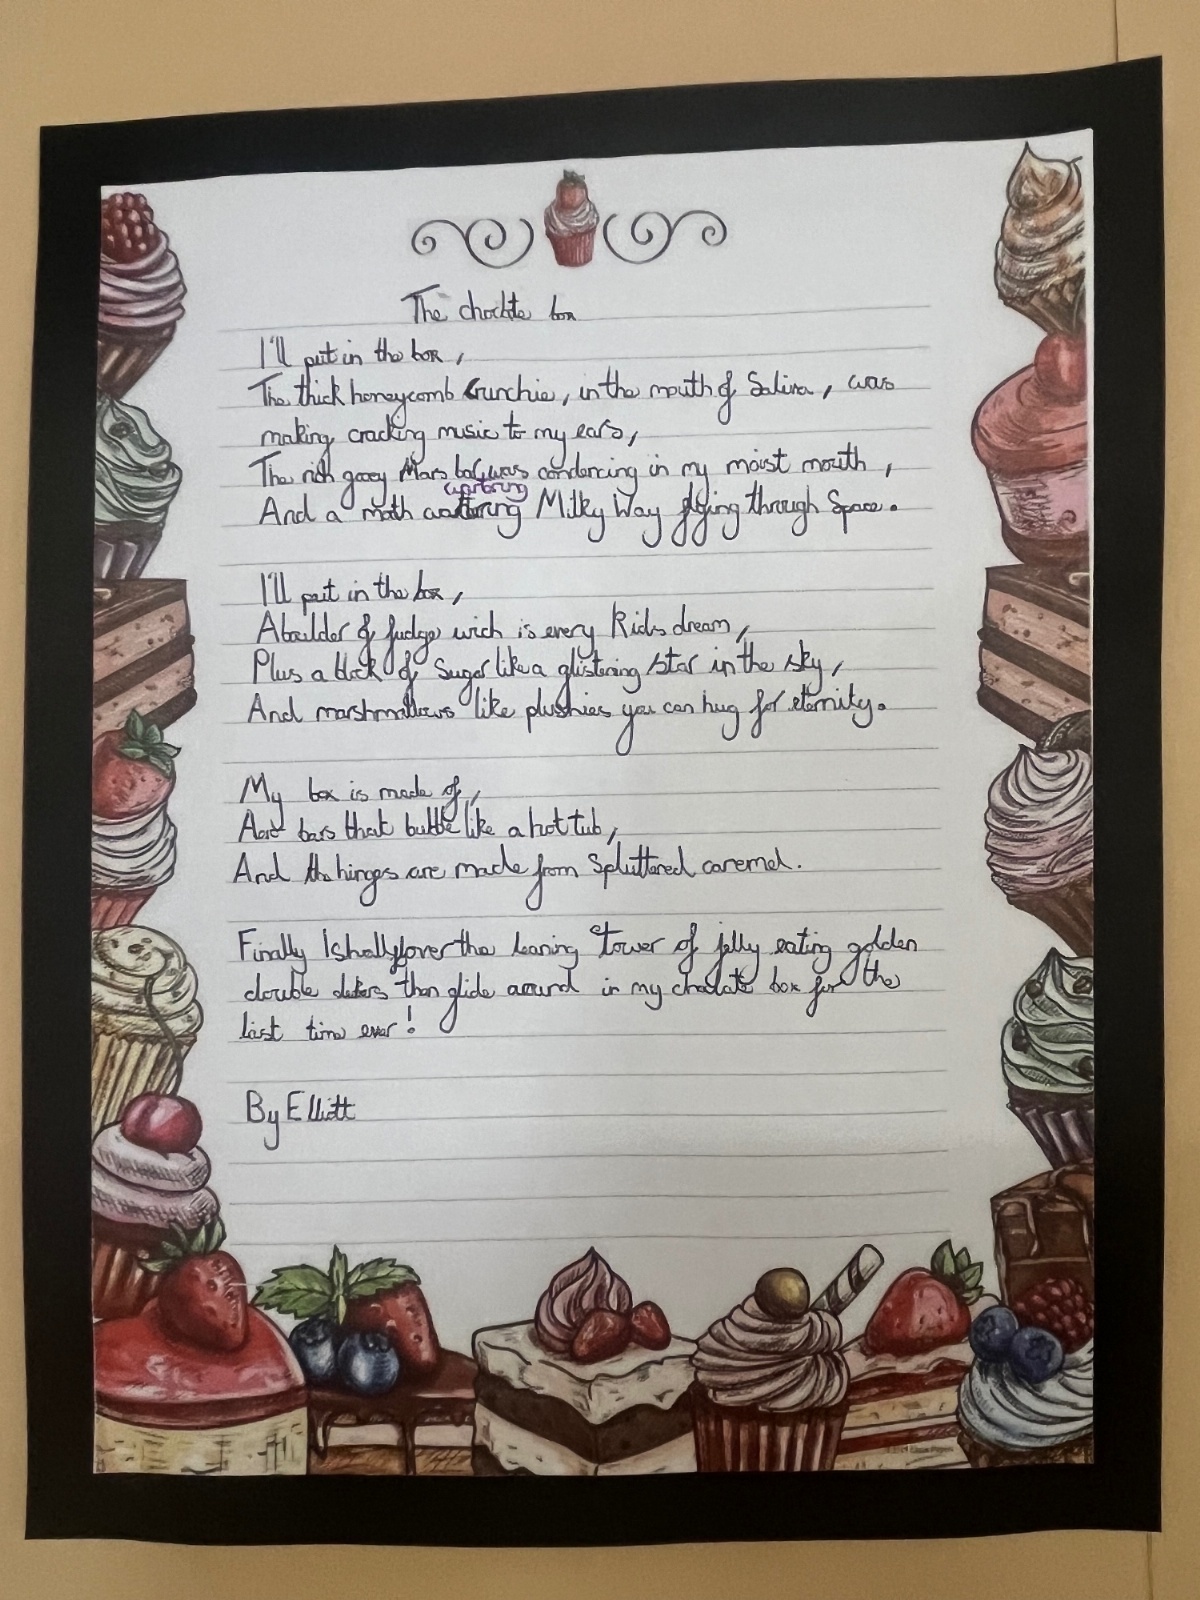 The choclate box
I'll put in the box,
The thick honeycomb Crunchie, in the mouth of Saliva, was
making cracking music to my ears,
The rich gooey Mars bar, was condencing in my moist mouth,
watering
And a moth Milky Way flying through Space.
I'll put in the box,
A boulder of fudge wich is every kids dream,
Plus a block of Sugar like a glistening star in the sky,
And marshmallows like plushies you can hug for eternity.
My box is made of,
bars that bubble like a hot tub,
And the hinges are made from Spluttered caremel.
Finally I shall fly over the leaning tower of jelly eating golden
double then glide around in my box for the
last time ever!
By Elliott